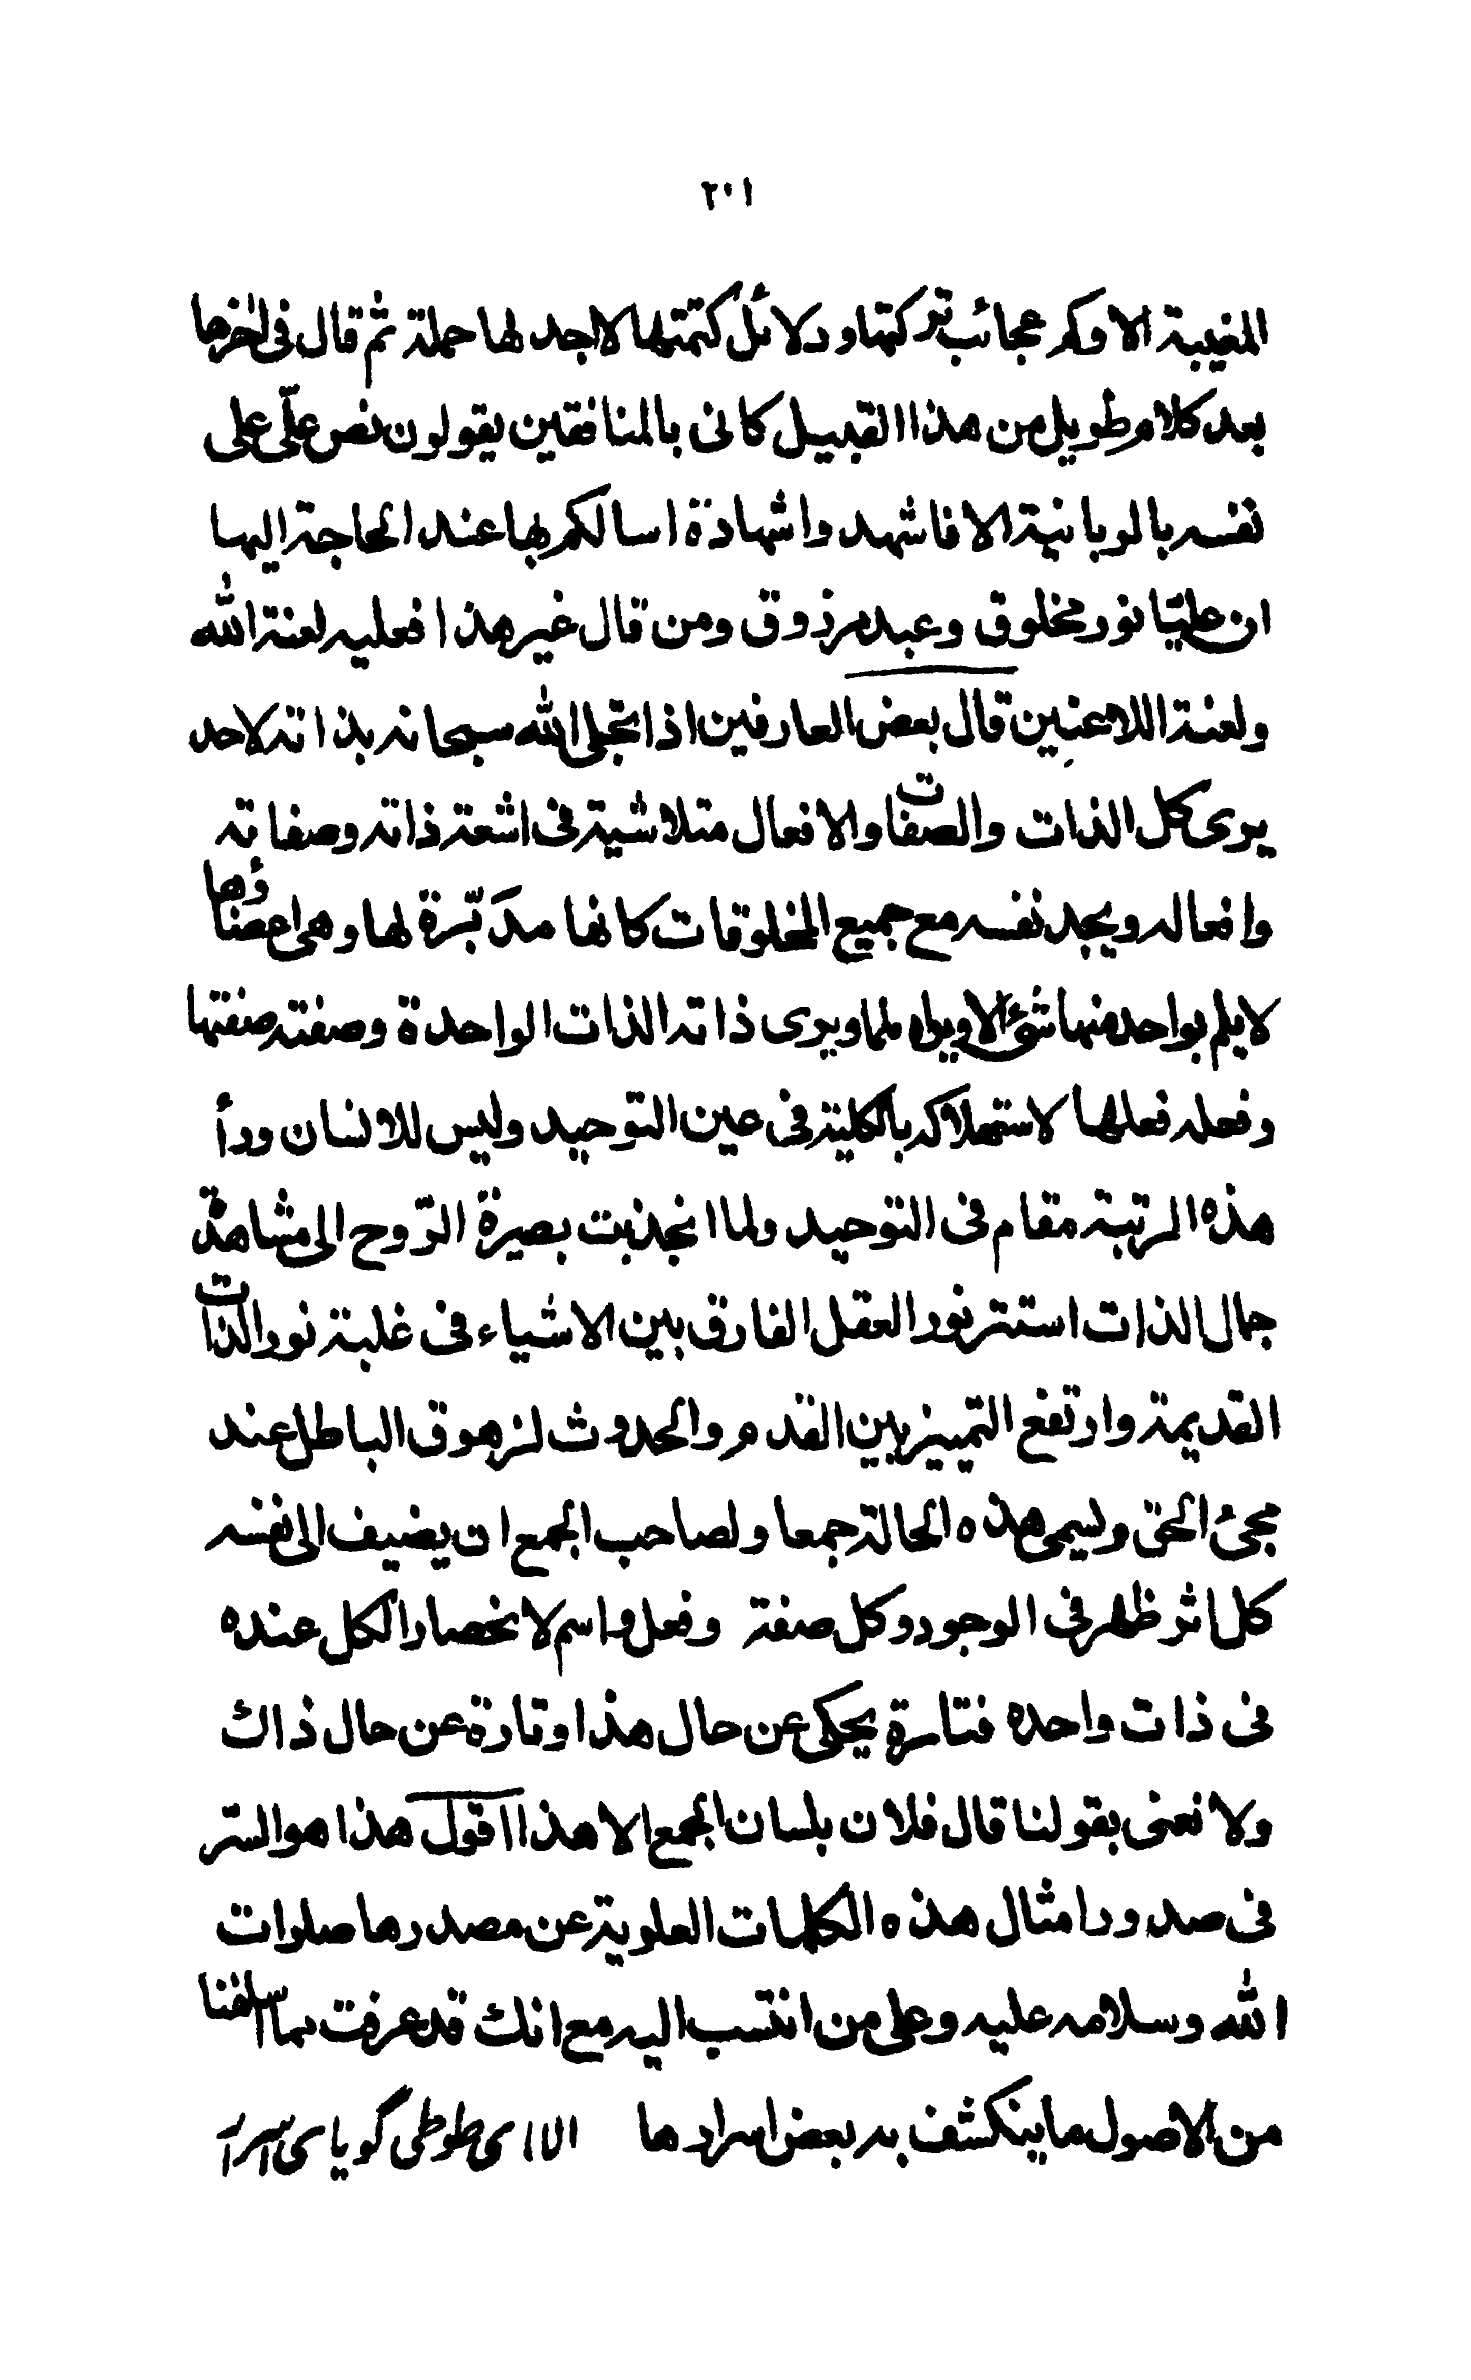 ٢٠١
المغيبة الا وكم عجائب تركتها ودلائل كتمتها لا اجد لها حملة ثم قال فى اخرها
بعد كلام طويل من هذا القبيل كانى بالمنافقين يقولون نص علّى على
نفسه بالربانية الا فاشهد واشهادة اسالكم بها عند الحاجة اليها
ان عليّا نور مخلوق وعبد مرزوق ومن قال غير هذا فعليه لعنة الله
ولعنة اللاعنين قال بعض العارفين اذا تجلى الله سبحانه بذاته لاحد
يرى كل الذات والصفات والافعال متلاشية فى اشعة ذاته وصفاته
وافعاله ويجد نفسه مع جميع المخلوقات كانها مدّبرة لها وهى اعضاؤها
لا يلم بواحد منها شئ الا ويراه ملما ويرى ذاته الذات الواحدة وصفته صفتها
وفعله فعلها لاستهلاكه بالكلية فى عين التوحيد وليس للانسان ورأ
هذه المرتبة مقام فى التوحيد ولما انجذبت بصيرة الرّوح الى مشاهدة
جمال الذات استتر نور العقل الفارق بين الاشياء فى غلبة نور الذات
القديمة وارتفع التمييز بين القدم والحدوث لزهوق الباطل عند
مجئ الحق وليسمى هذه الحالة جمعا ولصاحب الجمع ان يضيف الى نفسه
كل اثر ظهر فى الوجود وكل صفة وفعل واسم لانحصار الكل عنده
فى ذات واحده فتارة يحكى عن حال هذا وتارة عن حال ذاك
ولا نعنى بقولنا قال فلان بلسان الجمع الا هذا اقول هذا هو السّر
فى صدور امثال هذه الكلمات العلوية عن مصدرها صلوات
الله وسلامه عليه وعلى من انتسب اليه مع انك قد عرفت مما اسلفنا
من الاصول ما ينكشف به بعض اسرارها الا اى طوطى گوياى اسرار